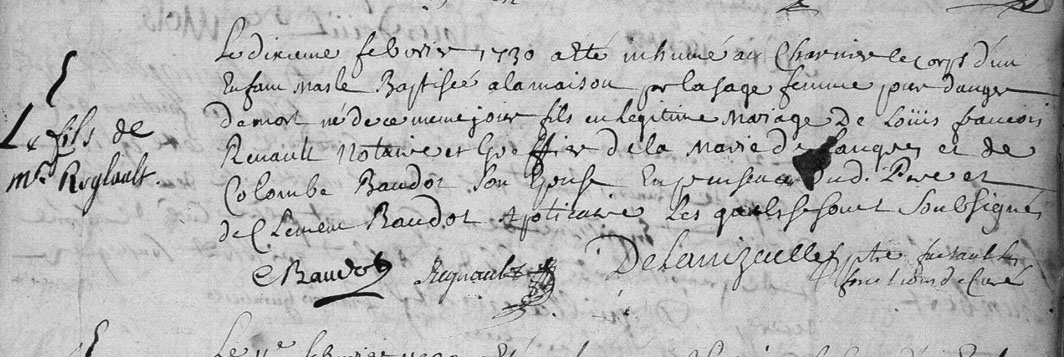 Le dixieme febvrier 1730 a esté inhumé au Charnier le corps d'un
Enfant Masle Baptisée a la maison par la sage femme pour danger
de mort né de ce meme jour fils en legitime Mariage de Loüis francois
Renault Notaire et Greffier de la Mairie de Langres et de
Colombe Baudot Son Epouse En presence dud. Pere et
de Clement Baudot Apoticaire Les quels se sont Soubsignés
Le fils de
Mr Regnault.
C Baudot Regnault ptre faisant les
fonctions de Curé